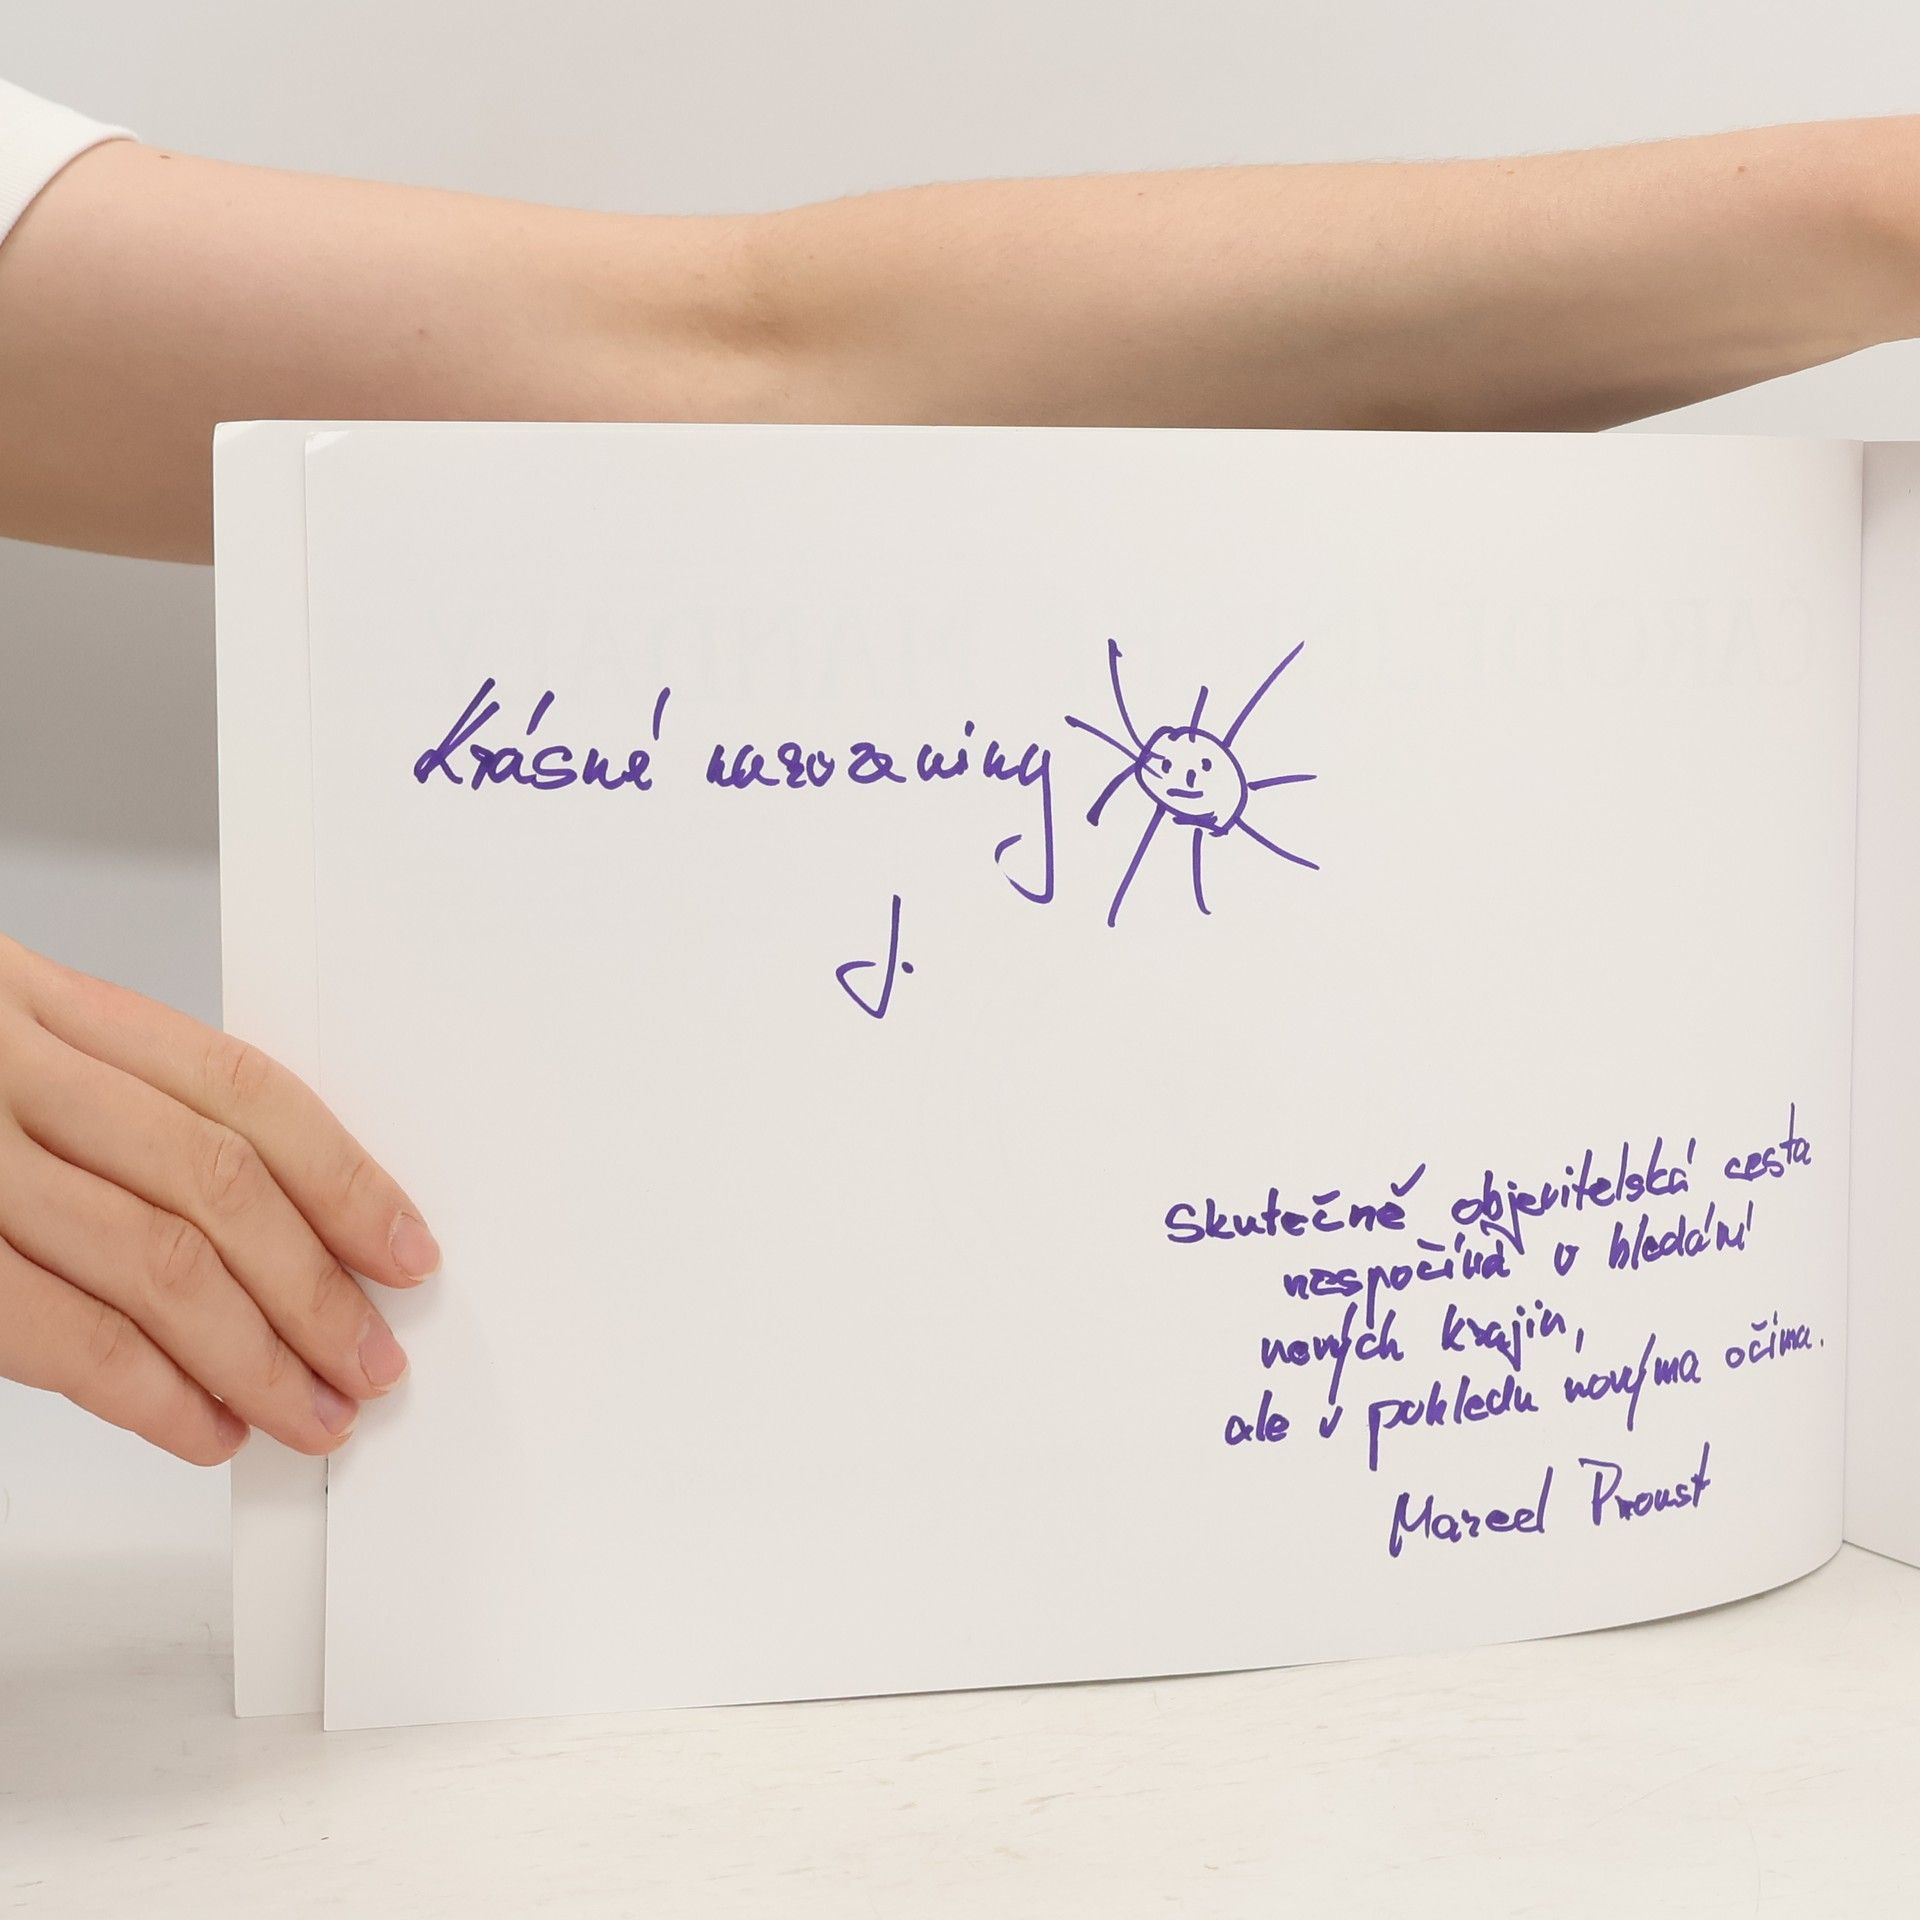 Krásné narozeniny
J.
Skutečně objevitelská cesta
nespočívá v hledání
nových krajin,
ale v pohledu novýma očima.
Marcel Proust